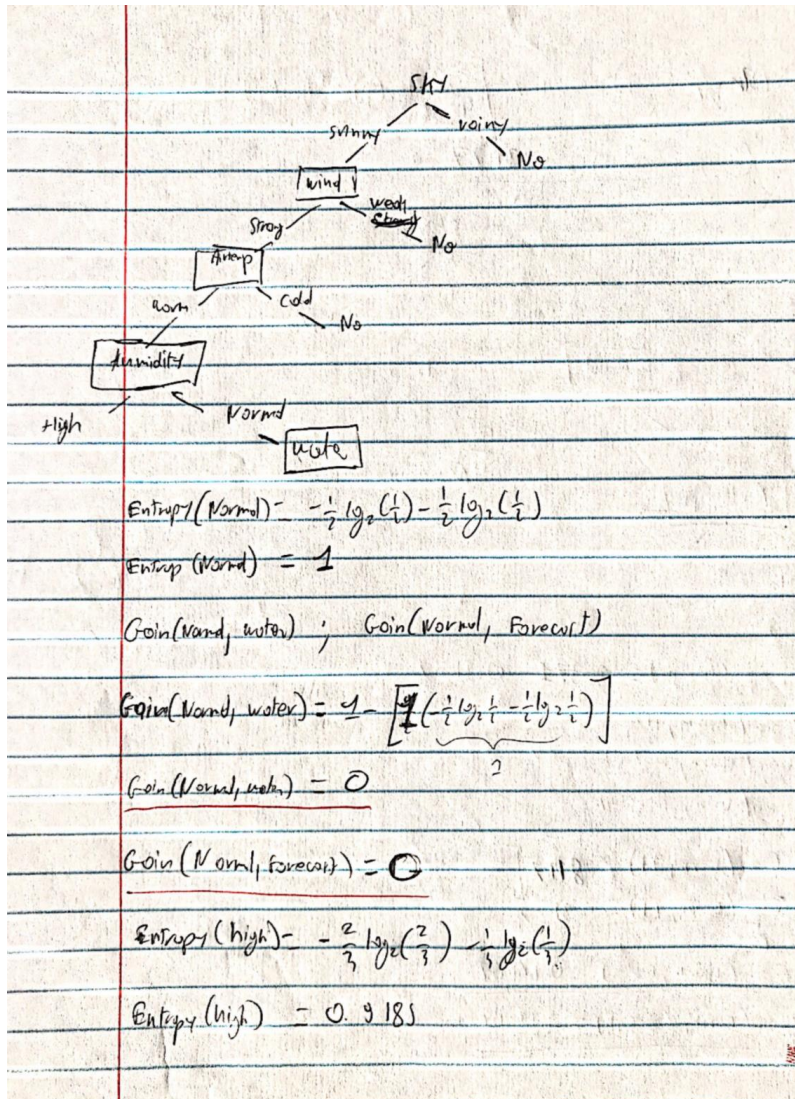 Sky
sunny rainy
No
wind
weak
Strong
Strong No
Atemp
warm Cold
No
Humidity
High Normal
water
Entropy(Normal) = -½ log₂(½) - ½ log₂(½)
Entrop (Normal) = 1
Gain(Normal, water) ; Gain(Normal, Forecast)
Gain(Normal, water) = 1 - [1(-½ log₂ ½ - ½ log₂ ½)]
Gain(Normal, water) = 0
Gain(Normal, Forecast) = 0
Entropy(high) = -2/3 log₂(2/3) - 1/3 log₂(1/3)
Entropy(high) = 0.9183